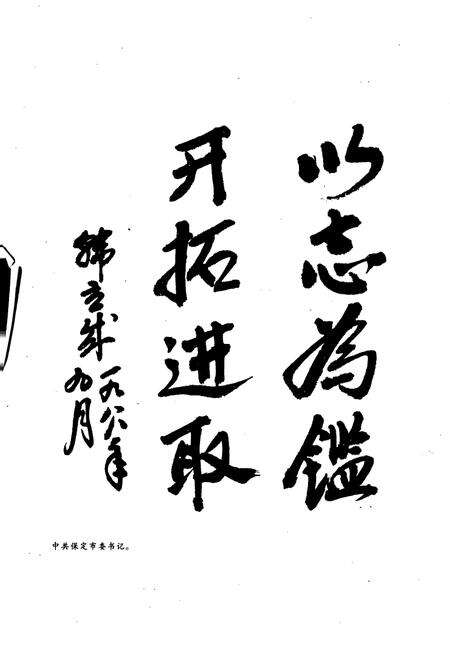 以志為鑑
开拓进取
韩立成
一九八八年
九月
中共保定市委书记。